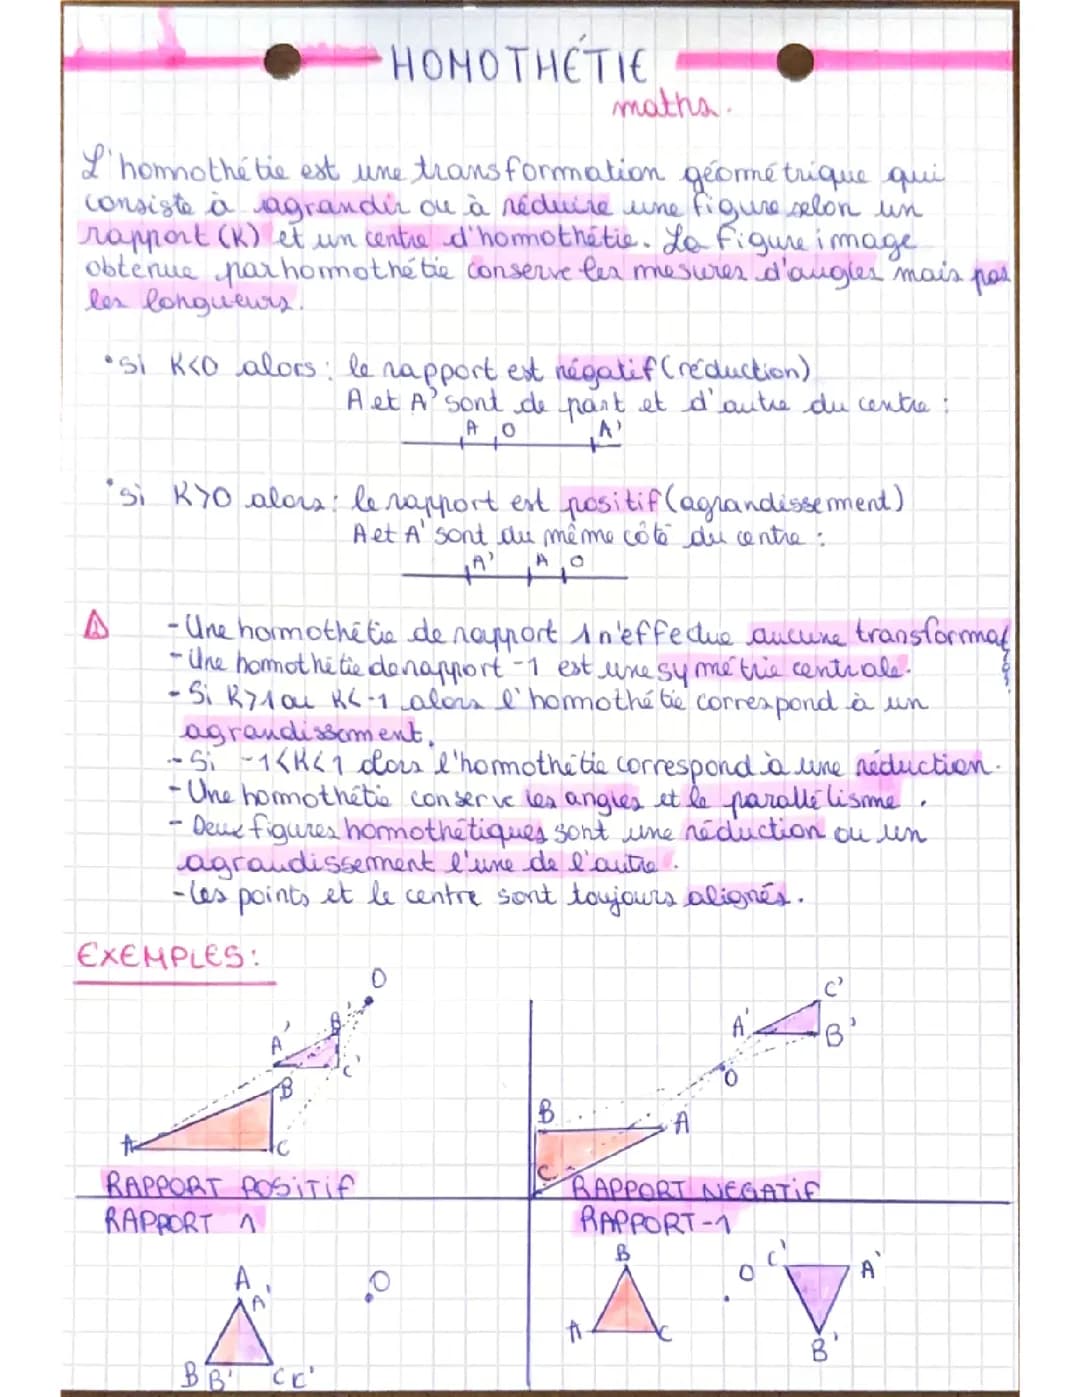 HOMOTHÉTIE
maths.
L'homothétie est une transformation géométrique qui
consiste à agrandir ou à réduire une figure selon un
rapport (K) et un centre d'homothétie. La figure image
obtenue par homothétie conserve les mesures d'angles mais pas
les longueurs.
•Si K<0 alors : le rapport est négatif (réduction)
A et A' sont de part et d'autre du centre :
A O A'
•Si K>0 alors : le rapport est positif (agrandissement)
A et A' sont du même côté du centre :
A' A O
- Une homothétie de rapport 1 n'effectue aucune transformat
- Une homothétie de rapport -1 est une symétrie centrale.
- Si K>1 ou K<-1 alors l'homothétie correspond à un
agrandissement.
- Si -1<K<1 alors l'homothétie correspond à une réduction.
- Une homothétie conserve les angles et le parallélisme.
- Deux figures homothétiques sont une réduction ou un
agrandissement l'une de l'autre.
- Les points et le centre sont toujours alignés.
EXEMPLES :
O
A' B' C'
B
A C
C'
A' B'
O
B A
C
RAPPORT POSITIF
RAPPORT NEGATIF
RAPPORT 1
RAPPORT -1
A A' O
B B' C C'
B O C' A'
A C
B'